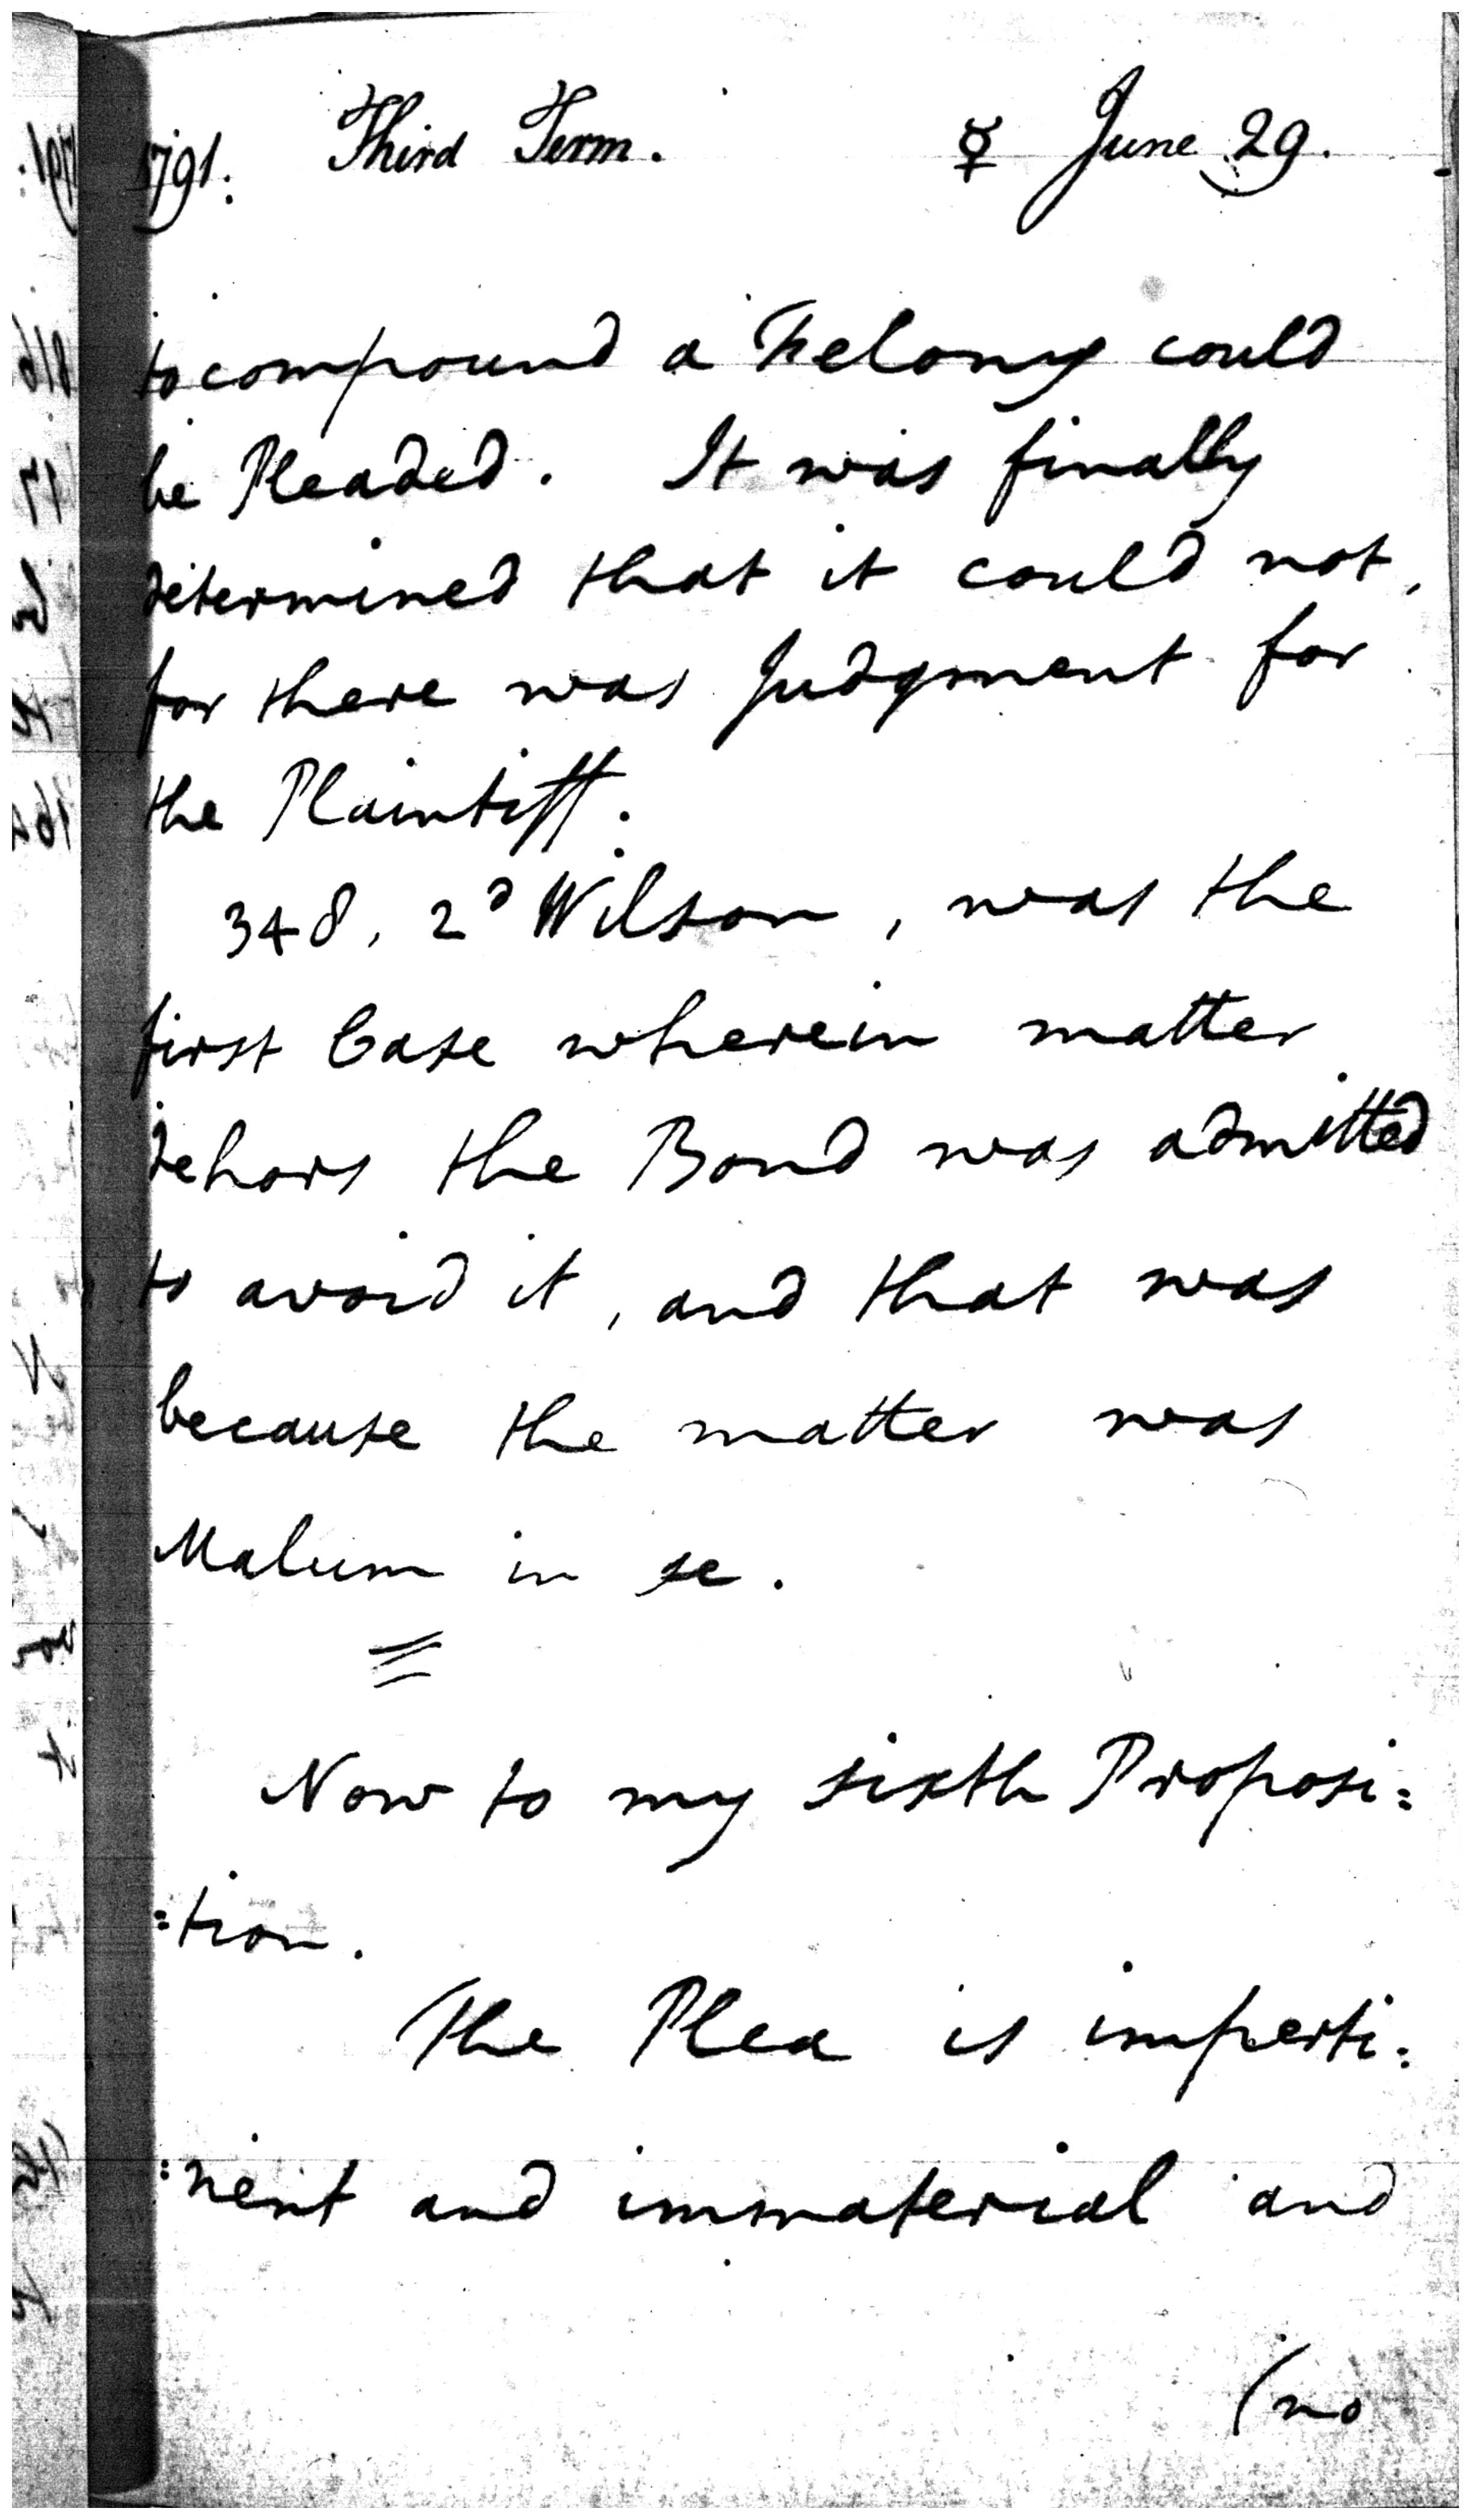 1791. Third Term. ☿ June 29.
to compound a Felony could
be Pleaded. It was finally
determined that it could not,
for there was Judgment for
the Plaintiff.
348, 2d Wilson, was the
first Case wherein matter
dehors the Bond was admitted
to avoid it, and that was
because the matter was
Malum in se.
Now to my sixth Proposi=
=tion.
The Plea is imperti=
=nent and immaterial and
(no